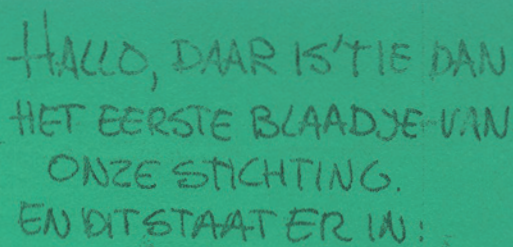 HALLO, DAAR IS'TIE DAN
HET EERSTE BLAADJE VAN
ONZE STICHTING.
EN DIT STAAT ER IN: